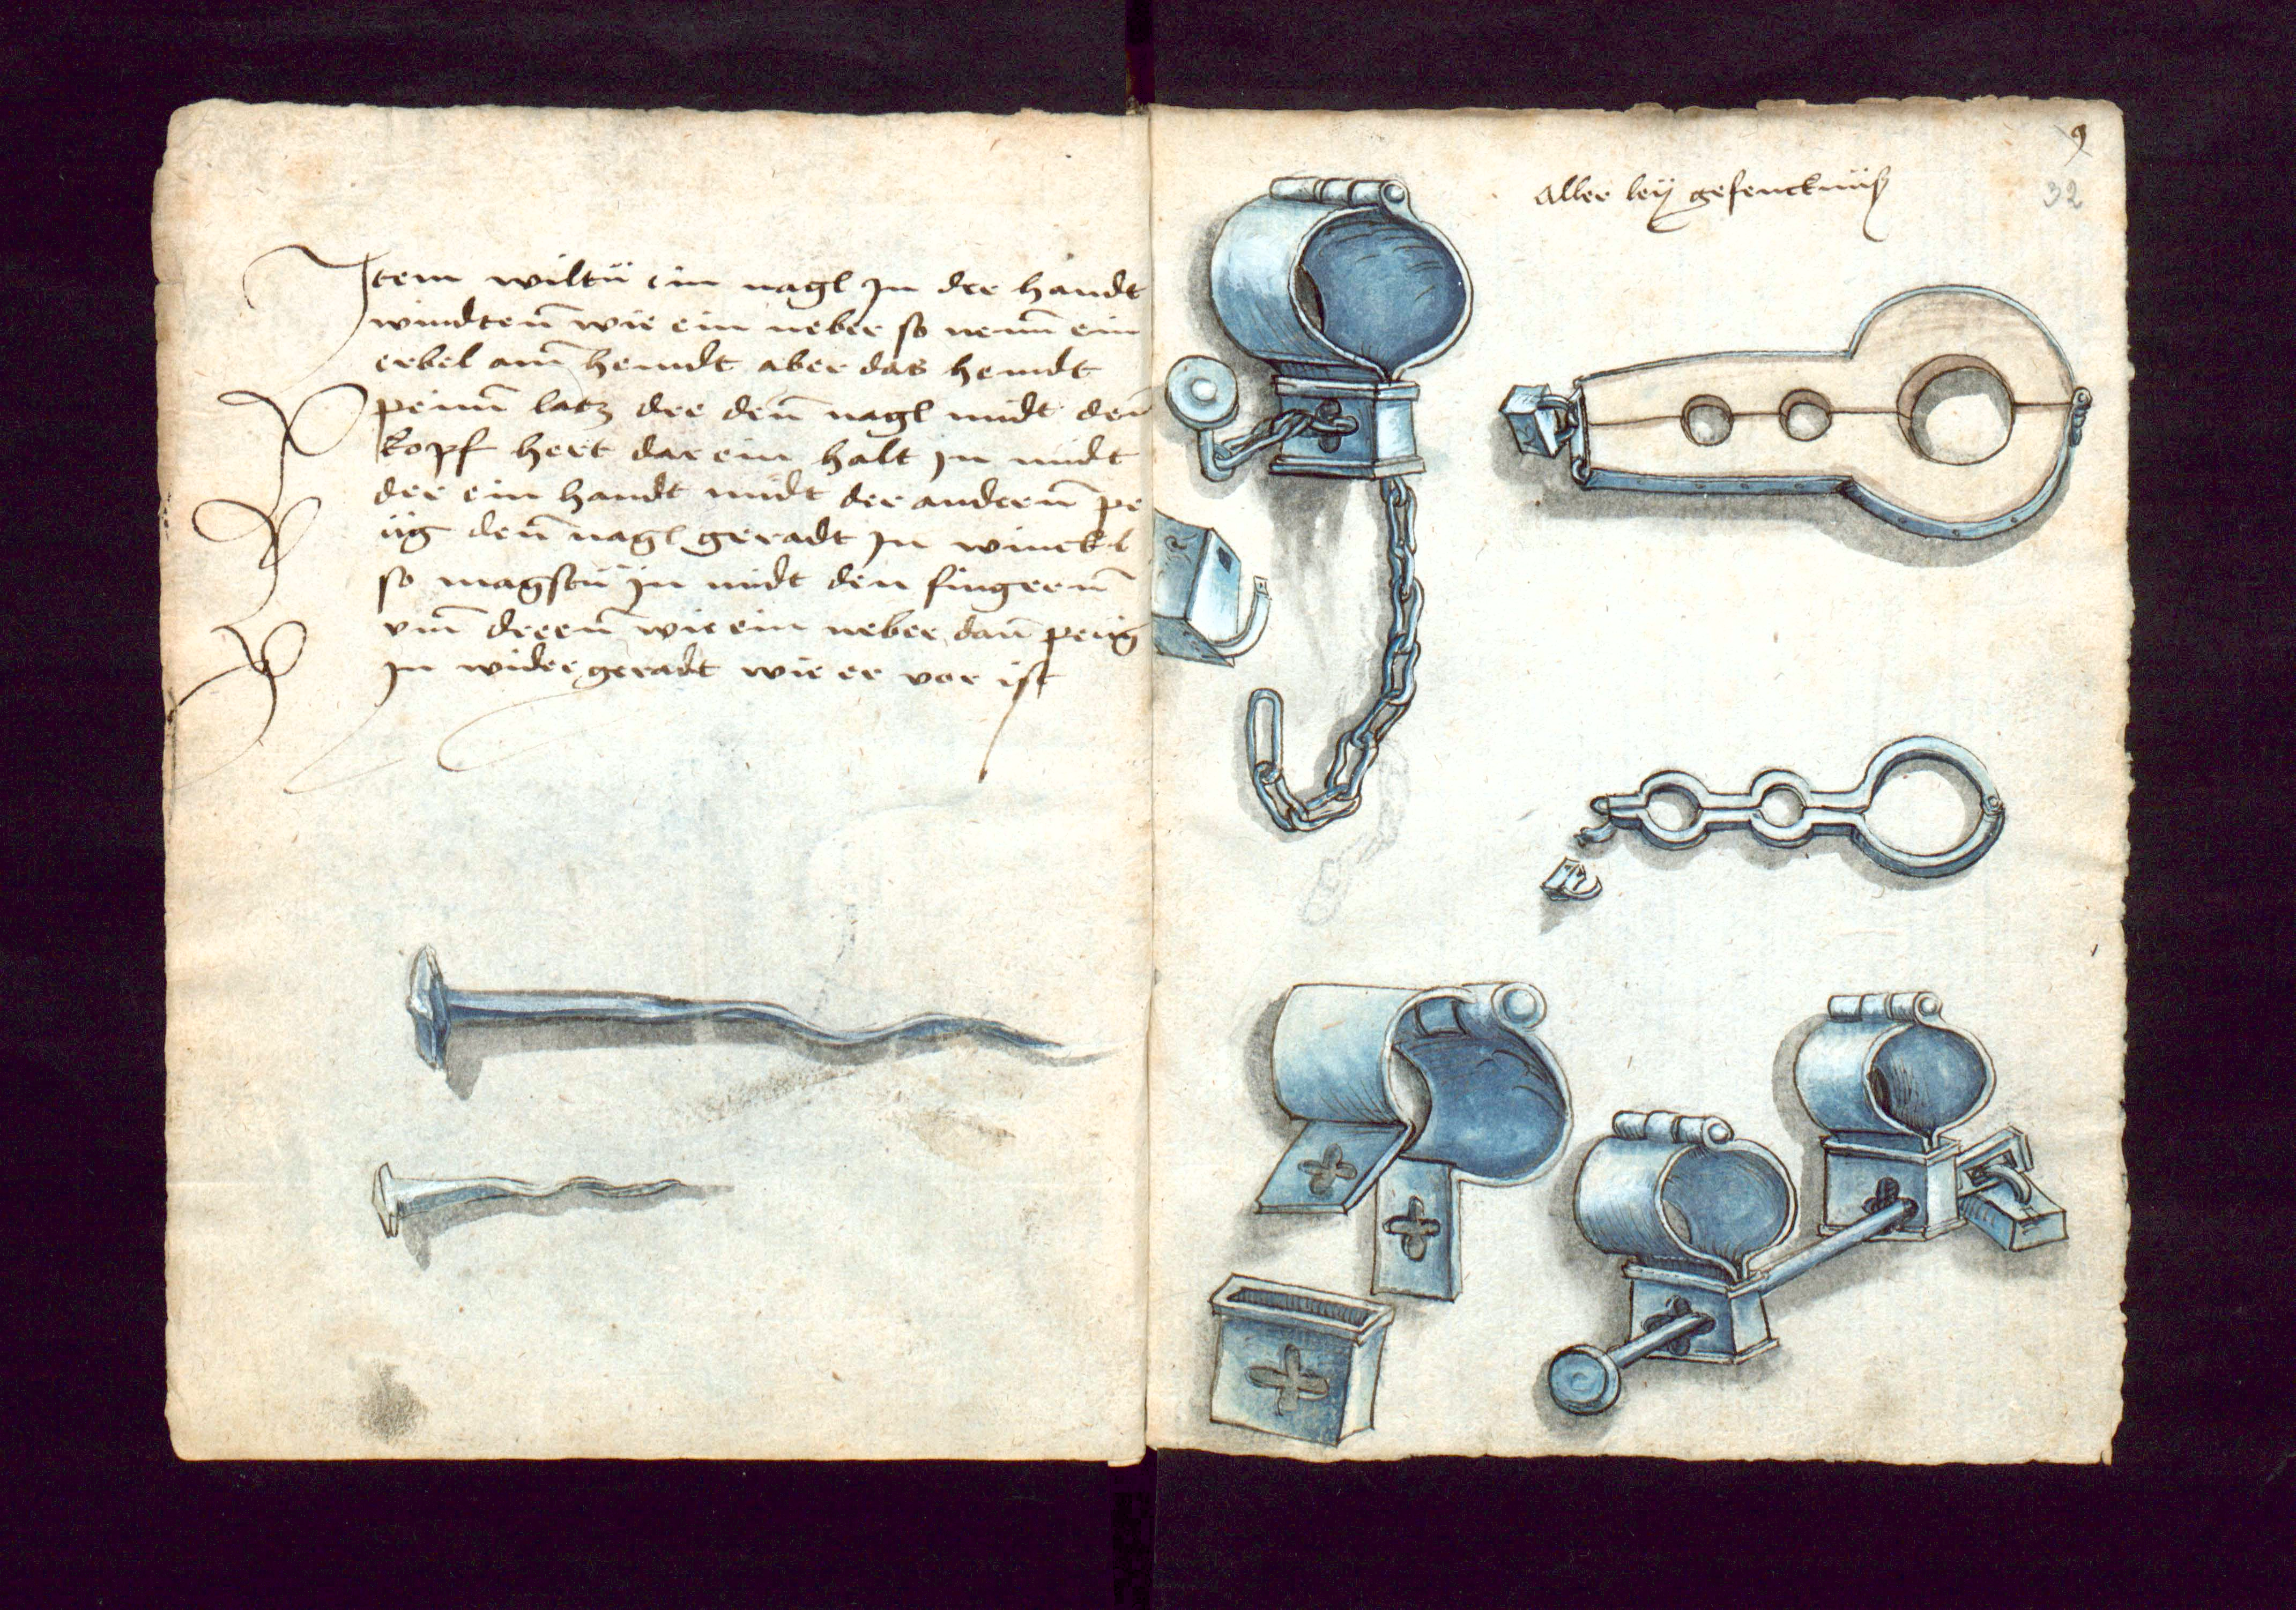 Item wiltu ein nagl In der handt
windtenn̄ wie ein neber so nem̄ ein
erbel am̄ hemdt aber das hemdt
peim̄ latz der den̄ nagl midt den̄
kopf hert dar ein halt In midt
der ein handt midt der anderen̄ pe
üg den̄ nagl geradt In winckl
so magstu In midt den fingeren̄
vm̄ dreen̄ wie ein neber dan̄ peüg
In wider geradt wie er vor ist
9
Aller leÿ gefencknüß
32